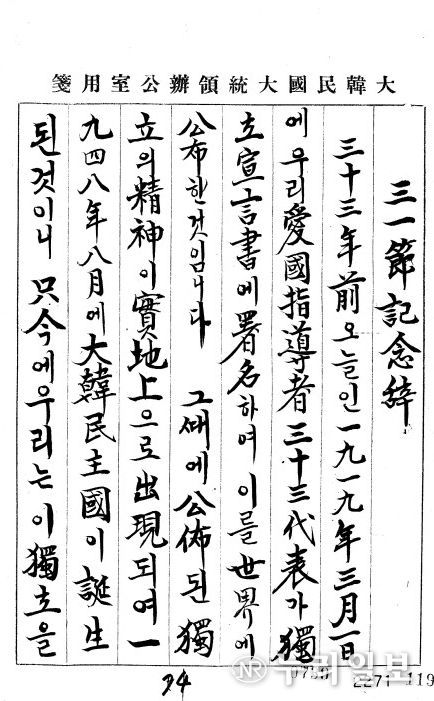 大韓民國大統領辦公室用箋
三一節記念辞
三十三年前오늘인一九一九年三月一日
에우리愛國指導者三十三代表가獨
立宣言書에署名하여이를世界에
公布한것입니다 그때에公佈된獨
立의精神이實地上으로出現되여一
九四八年八月에大韓民主國이誕生
된것이니 只今에우리는이獨立을
94
0730 2271 119
NR 누리일보